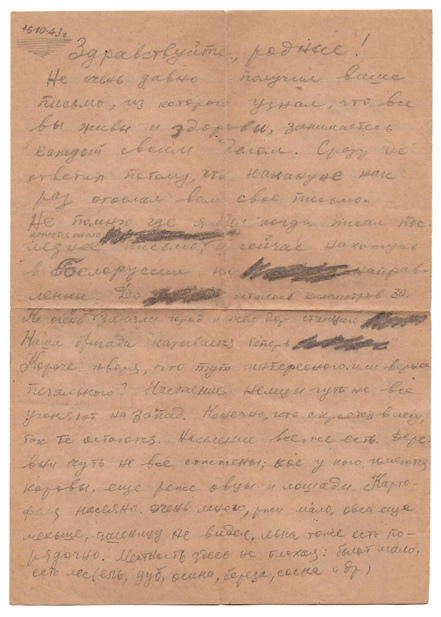 16-10-43г
Здравствуйте, родные!
Не очень давно получил ваше
письмо, из которого узнал, что все
вы живы и здоровы, занимаетесь
каждый своим делом. Сразу не
ответил потому, что накануне как
раз отослал вам свое письмо.
Не помню где я был когда писал пос-
леднее письмо, а сейчас нахожусь
в Белоруссии на направ-
лении. До осталось километров 30.
Не очень заняли город и жел. дор. станцию
Наша бригада называется теперь
Короче говоря, что тут интересного или верно
печального? Население немцы чуть не все
угоняют на запад. Конечно, кто скроется в лесу,
так те остаются. Население все же есть. Дере-
вни чуть не все сожжены; кое у кого имеются
коровы, еще реже овцы и лошади. Карто-
феля насеяно очень много, ржи мало, овса еще
меньше, пшеницу не видел, льна тоже есть по-
рядочно. Местность здесь не плохая: болот мало,
есть лес (ель, дуб, осина, береза, сосна и др)